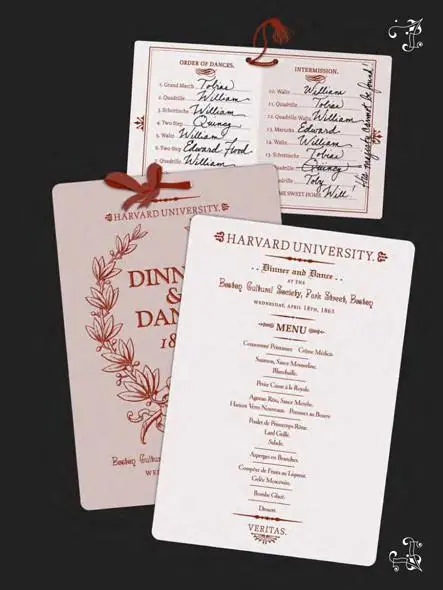 ORDER OF DANCES.
1. Grand March Tobias
2. Quadrille William
3. Schottische William
4. Two Step Quincy
5. Waltz William
6. Two Step Edward Hood
7. Quadrille William
INTERMISSION.
10. Waltz William
11. Quadrille Tobias
12. Quadrille Waltz William
13. Mazurka Edward
14. Waltz William
15. Schottische Tobias
Quadrille Quincy
Toby
HOME SWEET HOME Will!
His majesty cannot be found!
HARVARD UNIVERSITY.
DINN
&
DAN
18
Boston Cultural
WE
HARVARD UNIVERSITY.
Dinner and Dance
AT THE
Boston Cultural Society, Park Street, Boston
WEDNESDAY, APRIL 18TH, 1863
MENU
Consommé Printanier Crème Médicis
Saumon, Sauce Mousseline.
Blanchaille.
Petite Caisse à la Royale.
Agneau Rôti, Sauce Menthe.
Haricots Verts Nouveaux. Pommes au Beurre
Poulet de Printemps Rôtie.
Lard Grillé.
Salade.
Asperges en Branches.
Compôte de Fruits au Liqueur.
Gelée Moscovite.
Bombe Glacé.
Dessert.
VERITAS.